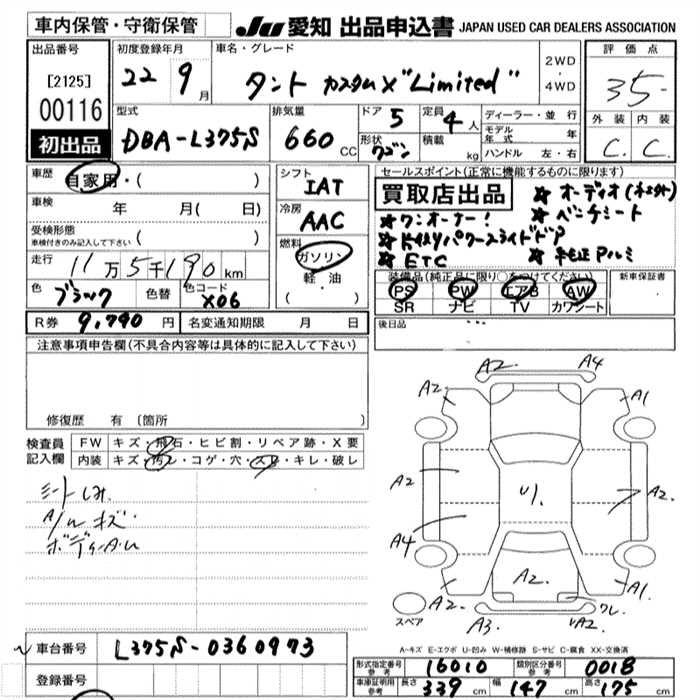 車内保管・守衛保管
JU 愛知 出品申込書 JAPAN USED CAR DEALERS ASSOCIATION
出品番号
[2125]
00116
初出品
初度登録年月
22 9月
車名・グレード
タント カスタムX"Limited"
2WD
・
4WD
評価点
35-
外装 内装
C. C.
型式
DBA-L375S
排気量
660 CC
ドア 5
形状 ワゴン
定員 4人
積載 kg
ディーラー・並行
モデル年式 年
ハンドル 左・右
車歴 自家用・( )
車検 年 月( 日)
受検形態
車検付きのみ記入して下さい ( )
走行 11万5千190km
色 ブラック 色替 色コード X06
R券 9,790円 名変通知期限 月 日
シフト
IAT
冷房
AAC
燃料
ガソリン
・
軽・油
( ・ )
セールスポイント(正常に機能するものに限ります)
買取店出品
★オーディオ(ネオト)
★ワンオーナー! ★ベンチシート
★片側パワースライドドア
★ETC ★純正アルミ
装備品(純正品に限り○をつけてください) 新車保証書
PS PW エアB AW
SR ナビ TV カワシート
後日品
注意事項申告欄(不具合内容等は具体的に記入して下さい)
修復歴 有 [箇所 ]
検査員記入欄
FW キズ・飛石・ヒビ割・リペア跡・X要
内装 キズ・汚レ・コゲ・穴・スレ・キレ・破レ
シートしみ
A/W キズ
ボディA・U
A2 A4
A2. A1
A2 U1. A2.
A4
A2.
A2. A1.
A3. ワレ A2
スペア
A-キズ E-エクボ U-凹み W-補修跡 S-サビ C-腐食 XX-交換済
車台番号 L375S-0360973
登録番号
形式指定番号 参考 16010 類別区分番号 参考 0018
車庫証明用 参考 長さ 339cm 幅 147cm 高さ 175cm